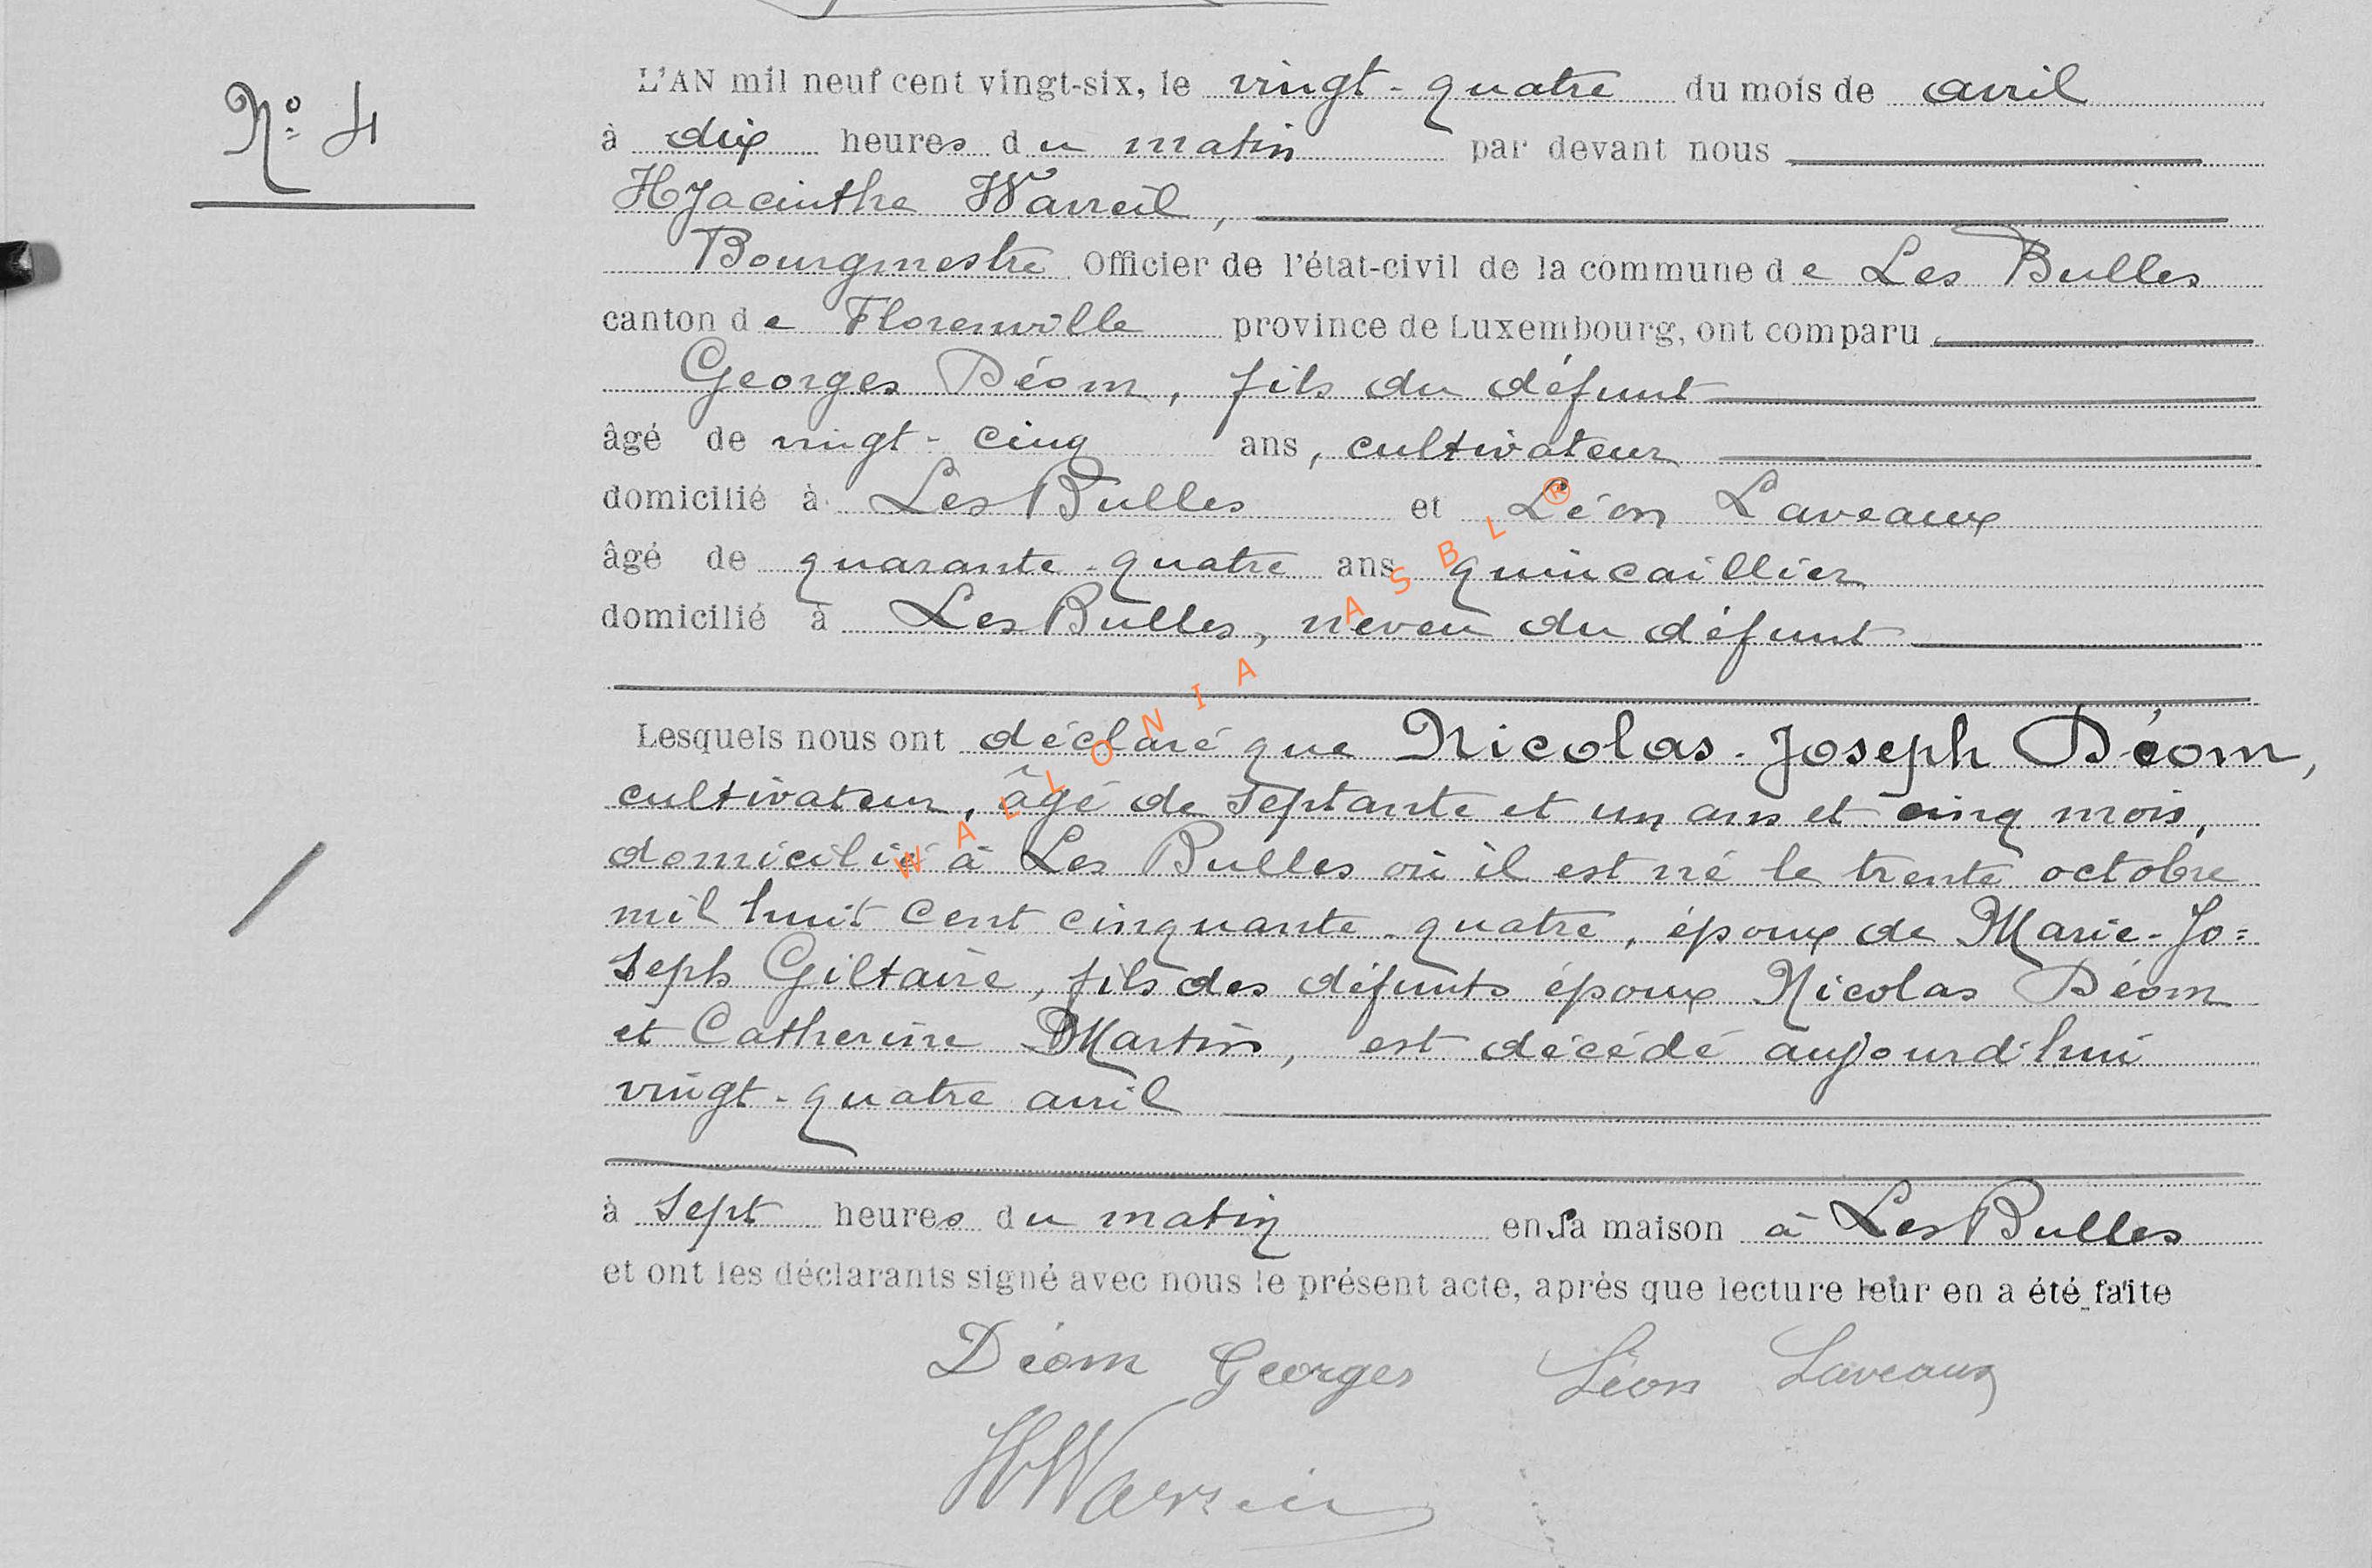 N° 4
L'AN mil neuf cent vingt-six, le vingt-quatre du mois de avril
à dix heures du matin par devant nous
Hyacinthe
Bourgmestre Officier de l'état-civil de la commune de Les Bulles
canton de Florenville province de Luxembourg, ont comparu
Georges Déom, fils du défunt
âgé de vingt-cinq ans, cultivateur
domicilié à Les Bulles et Léon Laveaux
âgé de quarante-quatre ans quincaillier
domicilié à Les Bulles, neveu du défunt
Lesquels nous ont déclaré que Nicolas-Joseph Déom,
cultivateur, âgé de septante et un ans et cinq mois,
domicilié à Les Bulles où il est né le trente octobre
mil huit cent cinquante-quatre, époux de Marie-Jo=
seph Giltaire, fils des défunts époux Nicolas Déom
et Catherine Martin, est décédé aujourd'hui
vingt-quatre avril
à sept heures du matin en sa maison à Les Bulles
et ont les déclarants signé avec nous le présent acte, après que lecture leur en a été faite
Déom Georges Léon Laveaux
WALLONIA ASBL®